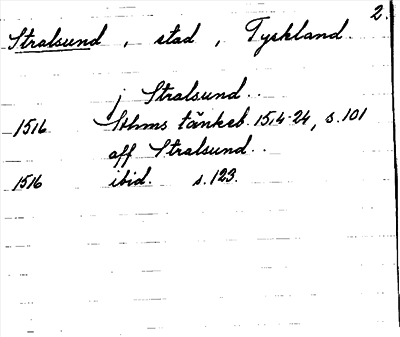 2.
Stralsund, stad, Tyskland.
j Stralsund..
1516 Sthms tänkeb. 1514-24, s.101
aff Stralsund..
1516 ibid. s.123.